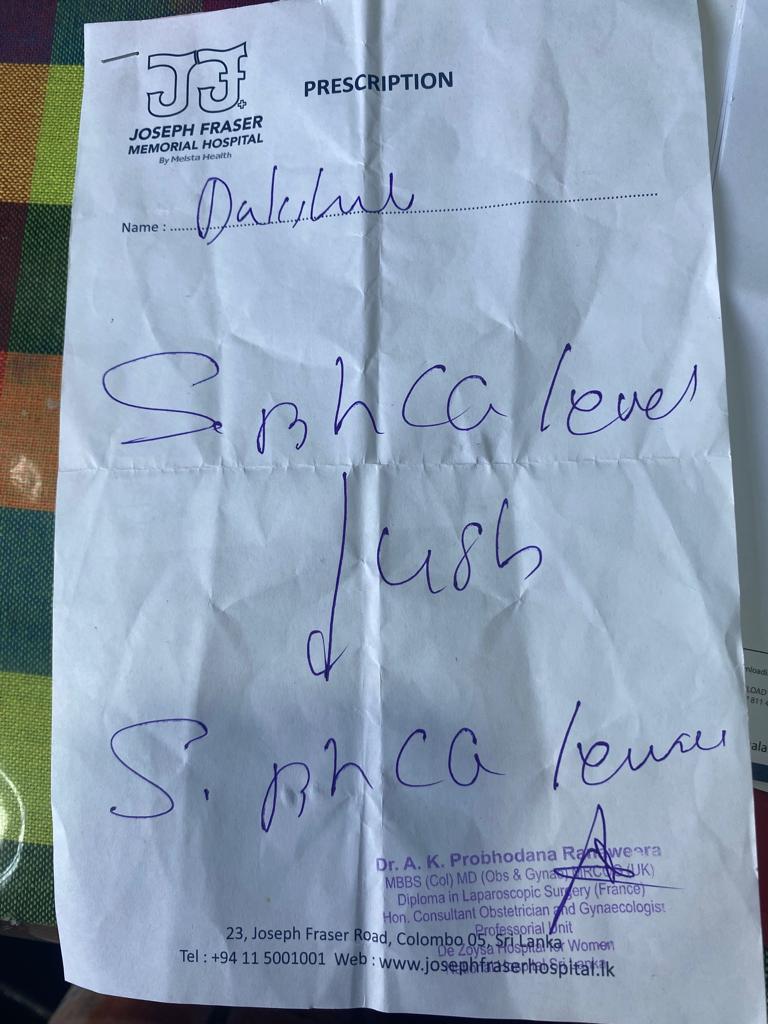 JF
JOSEPH FRASER
MEMORIAL HOSPITAL
By Melsta Health
PRESCRIPTION
Name :
S. βhCG level
48h
S. βhCG level
Dr. A. K. Probhodana Ranaweera
MBBS (Col) MD (Obs & Gynae) MRCOG (UK)
Diploma in Laparoscopic Surgery (France)
Hon. Consultant Obstetrician and Gynaecologist
Professorial Unit
De Zoysa Hospital for Women
23, Joseph Fraser Road, Colombo 05, Sri Lanka
Tel : +94 11 5001001 Web : www.josephfraserhospital.lk